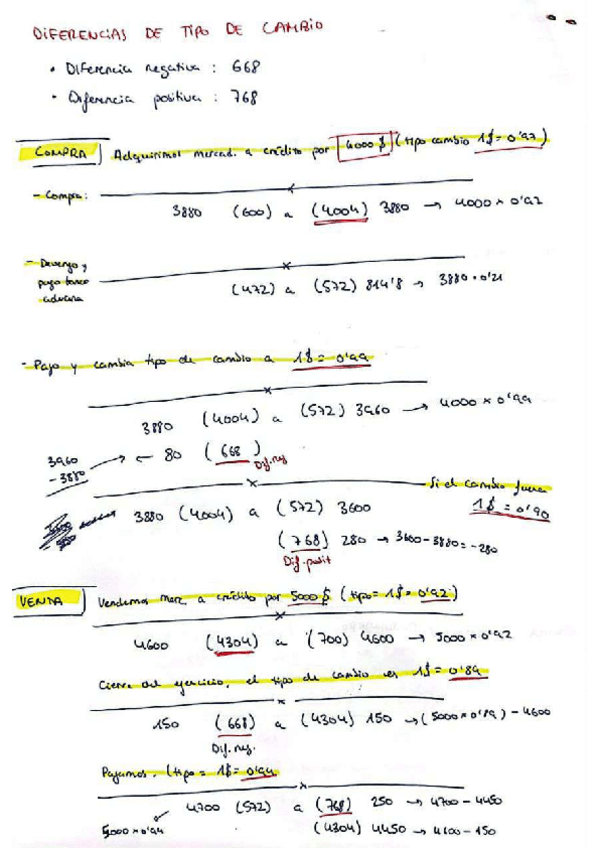 DIFERENCIAS DE TIPO DE CAMBIO
• Diferencia negativa : 668
• Diferencia positiva : 768
COMPRA Adquirimos mercad. a crédito por 4000 $ (tipo cambio 1$ = 0'97)
- Compra:
3880 (600) a (4004) 3880 → 4000 x 0'97
- Devengo y
pago
aduana
(472) a (572) 814'8 → 3880 · 0'21
- Pago y cambia tipo de cambio a 1$ = 0'99
3880 (4004) a (572) 3960 → 4000 x 0'99
3960
- 3880
← 80 (668)
Dif. neg
Si el cambio fuera
1$ = 0'90
3880 (4004) a (572) 3600
(768) 280 → 3600 - 3880 = -280
Dif. posit
VENTA Vendemos merc. a crédito por 5000 $ (tipo = 1$ = 0'92)
4600 (4304) a (700) 4600 → 5000 x 0'92
Cierre del ejercicio, el tipo de cambio es 1$ = 0'89
150 (668) a (4304) 150 → (5000 x 0'89) - 4600
Dif. neg.
Pagamos (tipo = 1$ = 0'94
4700 (572) a (768) 250 → 4700 - 4450
5000 x 0'94
(4304) 4450 → 4600 - 150